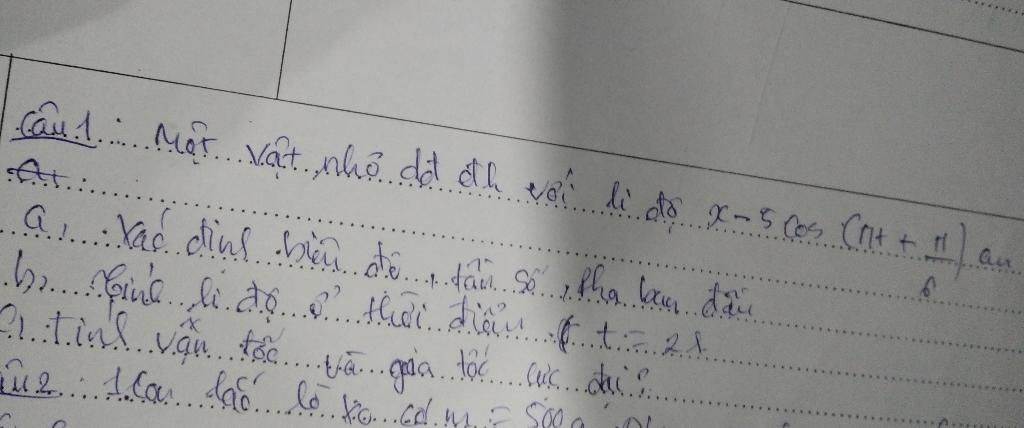 Câu 1: Một vật nhỏ dđ đh với li độ x - 5 cos (πt + π/6) cm
a, Xác định biên độ, tần số, pha ban đầu
b, Tính li độ ở thời điểm t = 2s
c, tính vận tốc và gia tốc cực đại?
Câu 2: 1 con lắc lò xo có m = 500g